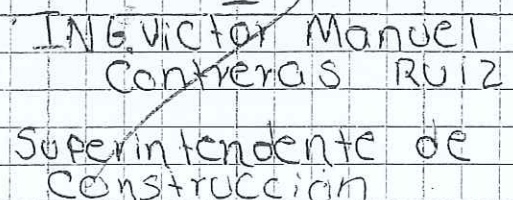 ING. Victor Manuel
Contreras Ruiz
Superintendente de
Construccion